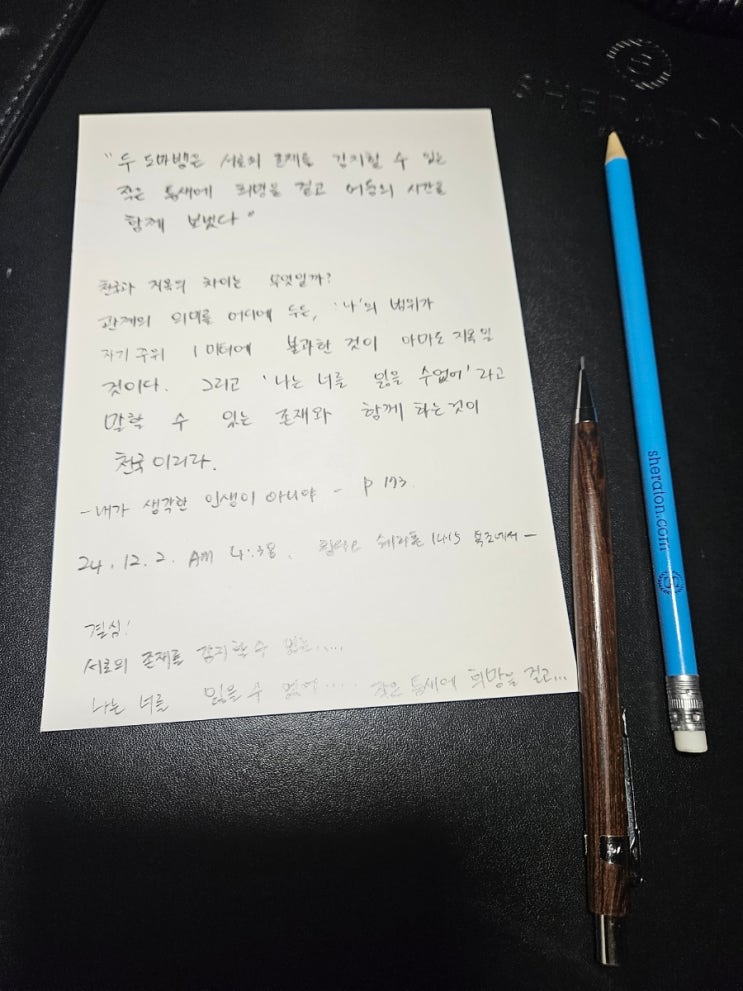 SHERATON
"두 도마뱀은 서로의 존재를 감지할 수 있는
작은 틈새에 희망을 걸고 어둠의 시간을
함께 보냈다"
천국과 지옥의 차이는 무엇일까?
관계의 의미를 어디에 두든, '나'의 범위가
자기 주위 1미터에 불과한 것이 아마도 지옥일
것이다. 그리고 '나는 너를 잃을 수 없어'라고
말할 수 있는 존재와 함께 하는 것이
천국이리라.
- 내가 생각한 인생이 아니야 - p 193.
24. 12. 2. AM 4:38. 쉐라톤 1415
결심!
서로의 존재를 감지할 수 있는.....
나는 너를 잃을 수 없어..... 작은 틈새에 희망을 걸고...
sheraton.com